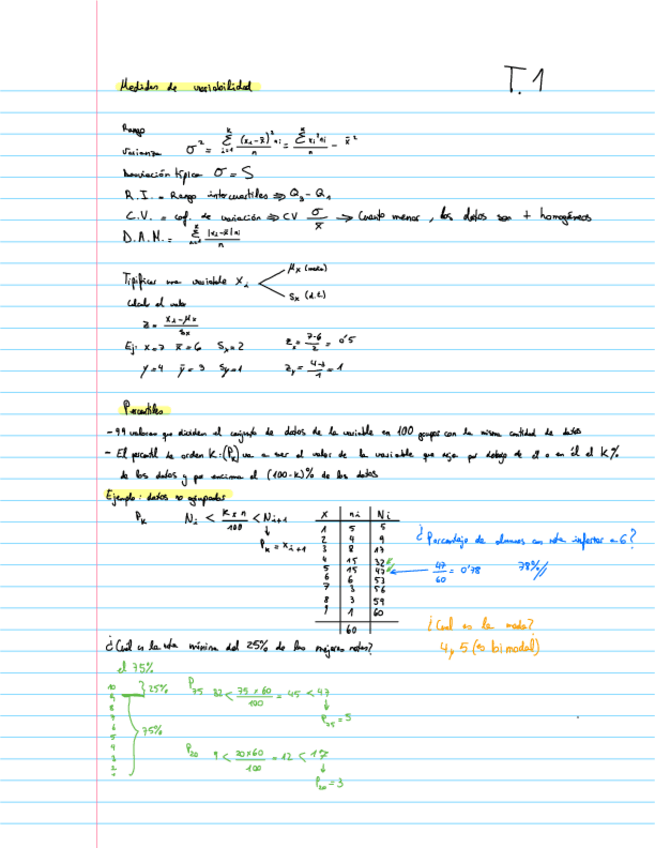 T.1
Medidas de variabilidad
Rango
Varianza σ² = Σ (xi-x̄)²ni / n = Σ xi²ni / n - x̄²
Desviación típica σ = S
R.I. = Rango intercuartiles ⇒ Q3 - Q1
C.V. = coef. de variación ⇒ CV σ/x̄ → Cuanto menor, los datos son + homogéneos
D.A.M. = Σ |xi-x̄|ni / n
Tipificar una variable Xi
μx (media)
Sx (d.t)
Calcula el valor
z = xi-μx / Sx
Ej: x=7 x̄=6 Sx=2 Zx = 7-6/2 = 0'5
y=4 ȳ=3 Sy=1 Zy = 4-3/1 = 1
Percentiles
- 99 valores que dividen el conjunto de datos de la variable en 100 grupos con la misma cantidad de datos
- El percentil de orden K:(PK) va a ser el valor de la variable que deja por debajo de él o en él el K%
de los datos y por encima el (100-K)% de los datos
Ejemplo: datos no agrupados
PK Ni < K×n/100 < Ni+1
↓
PK = xi+1
x ni Ni
1 5 5
2 4 9
3 8 17
4 15 32
5 15 47
6 6 53
7 3 56
8 3 59
9 1 60
60
¿Porcentaje de alumnos con nota inferior a 6?
47/60 = 0'78 78%//
¿Cuál es la moda?
4 y 5 (es bimodal)
¿Cuál es la nota mínima del 25% de las mejores notas?
el 75%
10
9
8
7
6
5
4
3
2
25%
75%
P75 32 < 75×60/100 = 45 < 47
↓
P75 = 5
P20 9 < 20×60/100 = 12 < 17
↓
P20 = 3